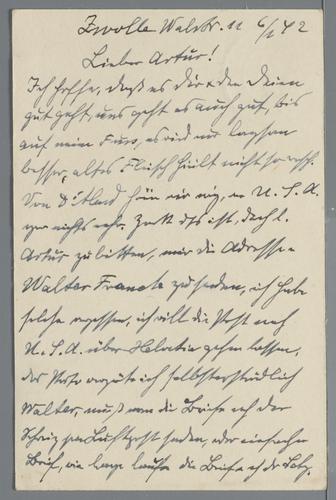 Zwolle Walstr. 11 6/1 42
Lieber Artur!
Ich hoffe, daß es dir & den Deinen
gut geht, uns geht es auch gut, bis
auf mein Fuss, es wird nur langsam
besser, altes Fleisch heilt nicht so rasch.
Von D'land hören wir nix, von U. S. A.
gar nichts mehr. Zweck dss ist, dich l.
Artur zu bitten, mir die Adresse v
Walter Franck zu senden, ich habe
solche vergessen, ich will die Post nach
U. S. A. über Helvetia gehen lassen,
das Porto vergüte ich selbstverständlich
Walter, muß man die Briefe nach der
Schweiz per Luftpost senden, oder einfachen
Brief, wie lange laufen die Briefe nach der